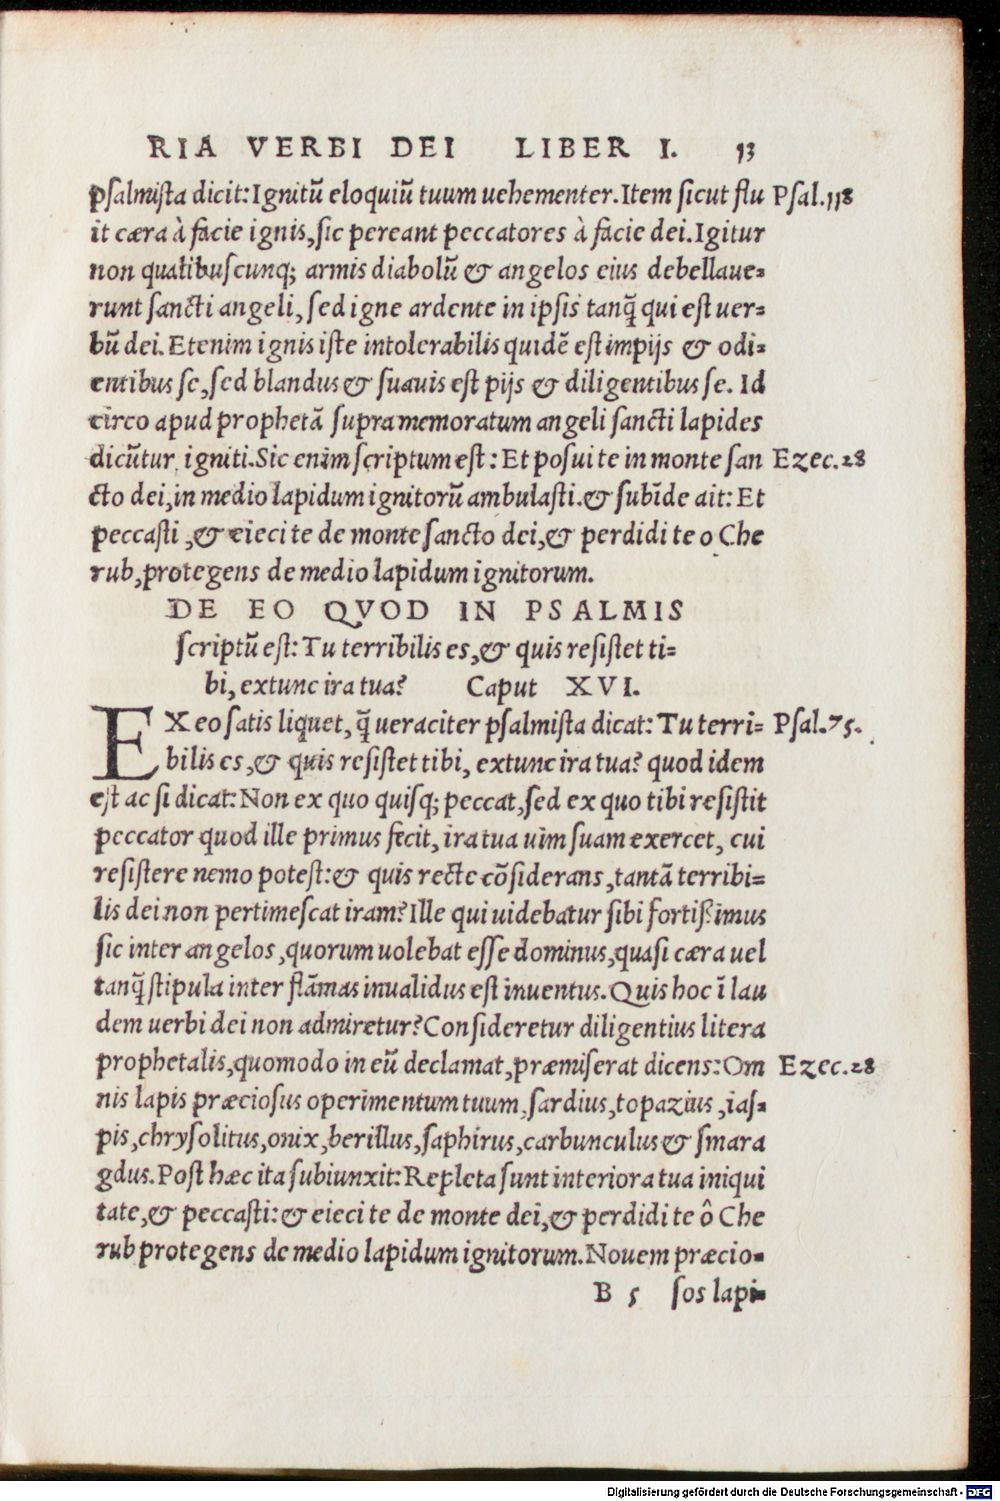 RIA VERBI DEI LIBER I. 13
psalmista dicit: Ignitũ eloquiũ tuum uehementer. Item sicut flu Psal.118
it cæra à facie ignis, sic pereant peccatores à facie dei. Igitur
non qualibuscunq; armis diabolũ & angelos eius debellaue-
runt sancti angeli, sed igne ardente in ipsis tanq̃ qui est uer-
bũ dei. Etenim ignis iste intolerabilis quidẽ est impijs & odi-
entibus se, sed blandus & suauis est pijs & diligentibus se. Id
circo apud prophetã supra memoratum angeli sancti lapides
dicũtur igniti. Sic enim scriptum est: Et posui te in monte san Ezec.28
cto dei, in medio lapidum ignitorũ ambulasti. & subĩde ait: Et
peccasti, & eieci te de monte sancto dei, & perdidi te o Che
rub, protegens de medio lapidum ignitorum.
DE EO QVOD IN PSALMIS
scriptũ est: Tu terribilis es, & quis resistet ti-
bi, extunc ira tua? Caput XVI.
EX eo satis liquet, q̃ ueraciter psalmista dicat: Tu terri- Psal.75.
bilis es, & quis resistet tibi, extunc ira tua? quod idem
est ac si dicat: Non ex quo quisq; peccat, sed ex quo tibi resistit
peccator quod ille primus fecit, ira tua uim suam exercet, cui
resistere nemo potest: & quis recte cõsiderans, tantã terribi-
lis dei non pertimescat iram? Ille qui uidebatur sibi fortissimus
sic inter angelos, quorum uolebat esse dominus, quasi cæra uel
tanq̃ stipula inter flãmas inualidus est inuentus. Quis hoc ĩ lau
dem uerbi dei non admiretur? Consideretur diligentius litera
prophetalis, quomodo in eũ declamat, præmiserat dicens: Om Ezec.28
nis lapis præciosus operimentum tuum, sardius, topazius, ias-
pis, chrysolitus, onix, berillus, saphirus, carbunculus & smara
gdus. Post hæc ita subiunxit: Repleta sunt interiora tua iniqui
tate, & peccasti: & eieci te de monte dei, & perdidi te ô Che
rub protegens de medio lapidum ignitorum. Nouem præcio-
B 5 sos lapi-
Digitalisierung gefördert durch die Deutsche Forschungsgemeinschaft - DFG